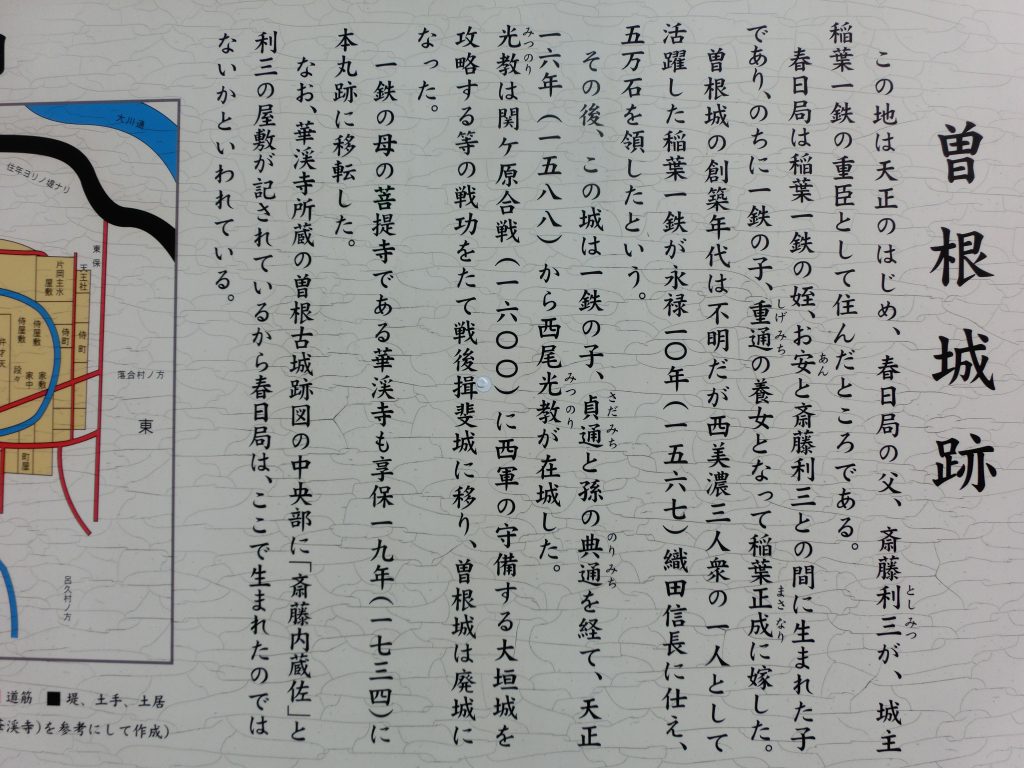 曽根城跡
この地は天正のはじめ、春日局の父、斎藤利三が、城主
としみつ
稲葉一鉄の重臣として住んだところである。
春日局は稲葉一鉄の姪、お安と斎藤利三との間に生まれた子
あん
であり、のちに一鉄の子、重通の養女となって稲葉正成に嫁した。
しげみち
まさなり
曽根城の創築年代は不明だが西美濃三人衆の一人として
活躍した稲葉一鉄が永禄一〇年(一五六七)織田信長に仕え、
五万石を領したという。
その後、この城は一鉄の子、貞通と孫の典通を経て、天正
さだみち
のりみち
一六年(一五八八)から西尾光教が在城した。
みつのり
光教は関ケ原合戦(一六〇〇)に西軍の守備する大垣城を
みつのり
攻略する等の戦功をたて戦後揖斐城に移り、曽根城は廃城に
なった。
一鉄の母の菩提寺である華渓寺も享保一九年(一七三四)に
本丸跡に移転した。
なお、華渓寺所蔵の曽根古城跡図の中央部に「斎藤内蔵佐」と
利三の屋敷が記されているから春日局は、ここで生まれたのでは
ないかといわれている。
大川通
往年ヨリノ堤ナリ
東保
天王社
片岡主水屋敷
侍町
侍町
侍屋敷
侍屋敷
家中
家敷
段々
弁才天
落合村ノ方
東
町屋
呂久村ノ方
道筋
堤、土手、土居
渓寺)を参考にして作成)